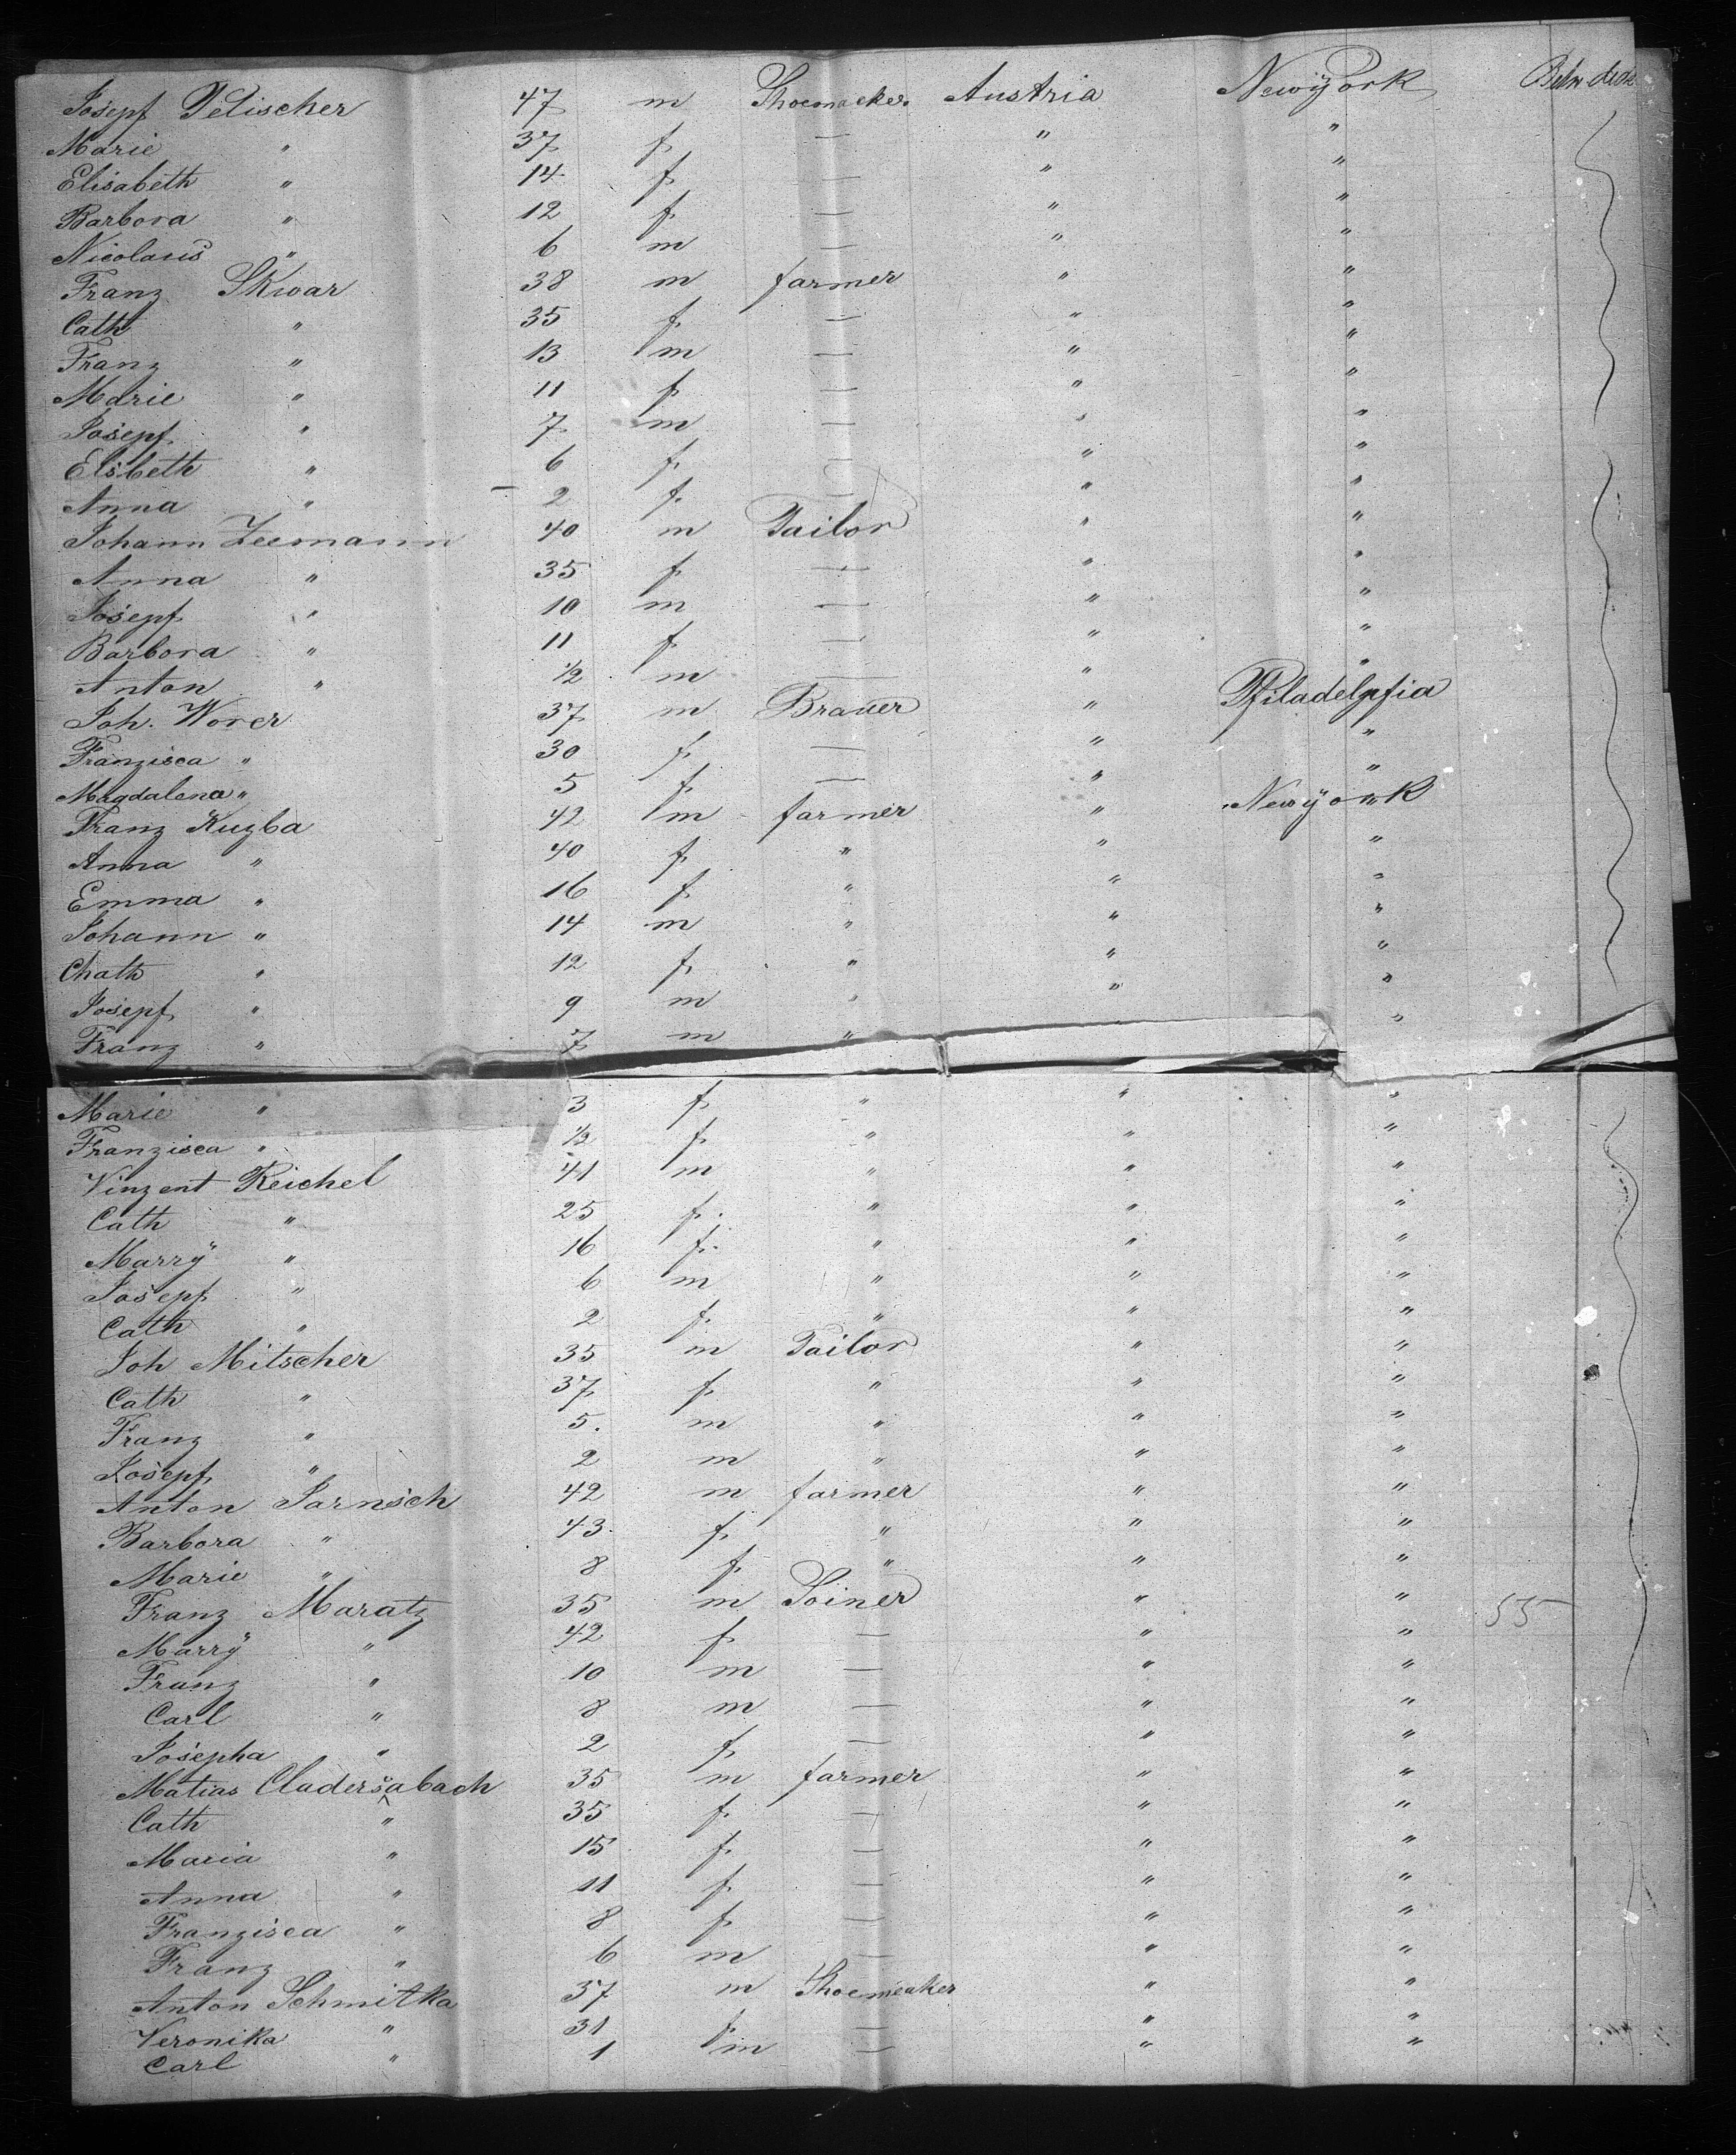 Josepf Pelischer 47 m Shoemacker Austria Newÿork
Marie " 37 f — " "
Elisabeth " 14 f — " "
Barbora " 12 f — " "
Nicolaus " 6 m — " "
Franz Skwar 38 m farmer " "
Cath " 35 f — " "
Franz " 13 m — " "
Marie " 11 f — " "
Josepf " 7 m — " "
Elsbeth " 6 f — " "
Anna " 2 f — " "
Johann Zeemann 40 m Tailor " "
Anna " 35 f — " "
Josepf " 10 m — " "
Barbora " 11 f — " "
Anton " 1/2 m — " "
Joh. Worer 37 m Brauer " Pfiladelpfia
Franzisca " 30 f — " "
Magdalena " 5 f — " "
Franz Kuzba 42 m farmer " Newÿork
Anna " 40 f " " "
Emma " 16 f " " "
Johann " 14 m " " "
Chath " 12 f " " "
Josepf " 9 m " " "
Franz " 7 m " " "
Marie " 3 f " " "
Franzisca " 1/2 f " " "
Vinzent Reichel 41 m " " "
Cath " 25 f. " " "
Marrÿ " 16 f. " " "
Josepf " 6 m " " "
Cath " 2 f " " "
Joh Mitscher 35 m Tailor " "
Cath " 37 f " " "
Franz " 5. m " " "
Josepf " 2 m " " "
Anton Jarnsch 42 m farmer " "
Barbora " 43. f " " "
Marie " 8 f " " "
Franz Maratz 35 m Joiner " " 55
Marrÿ " 42 f — " "
Franz " 10 m — " "
Carl " 8 m — " "
Josepha " 2 f — " "
Matias Cladersabach 35 m farmer " "
Cath " 35 f — " "
Maria " 15 f — " "
Anna " 11 f — " "
Franzisca " 8 f — " "
Franz " 6 m — " "
Anton Schmitka 37 m Shoemeaker " "
Veronika " 31 f — " "
Carl " 1 m — " "